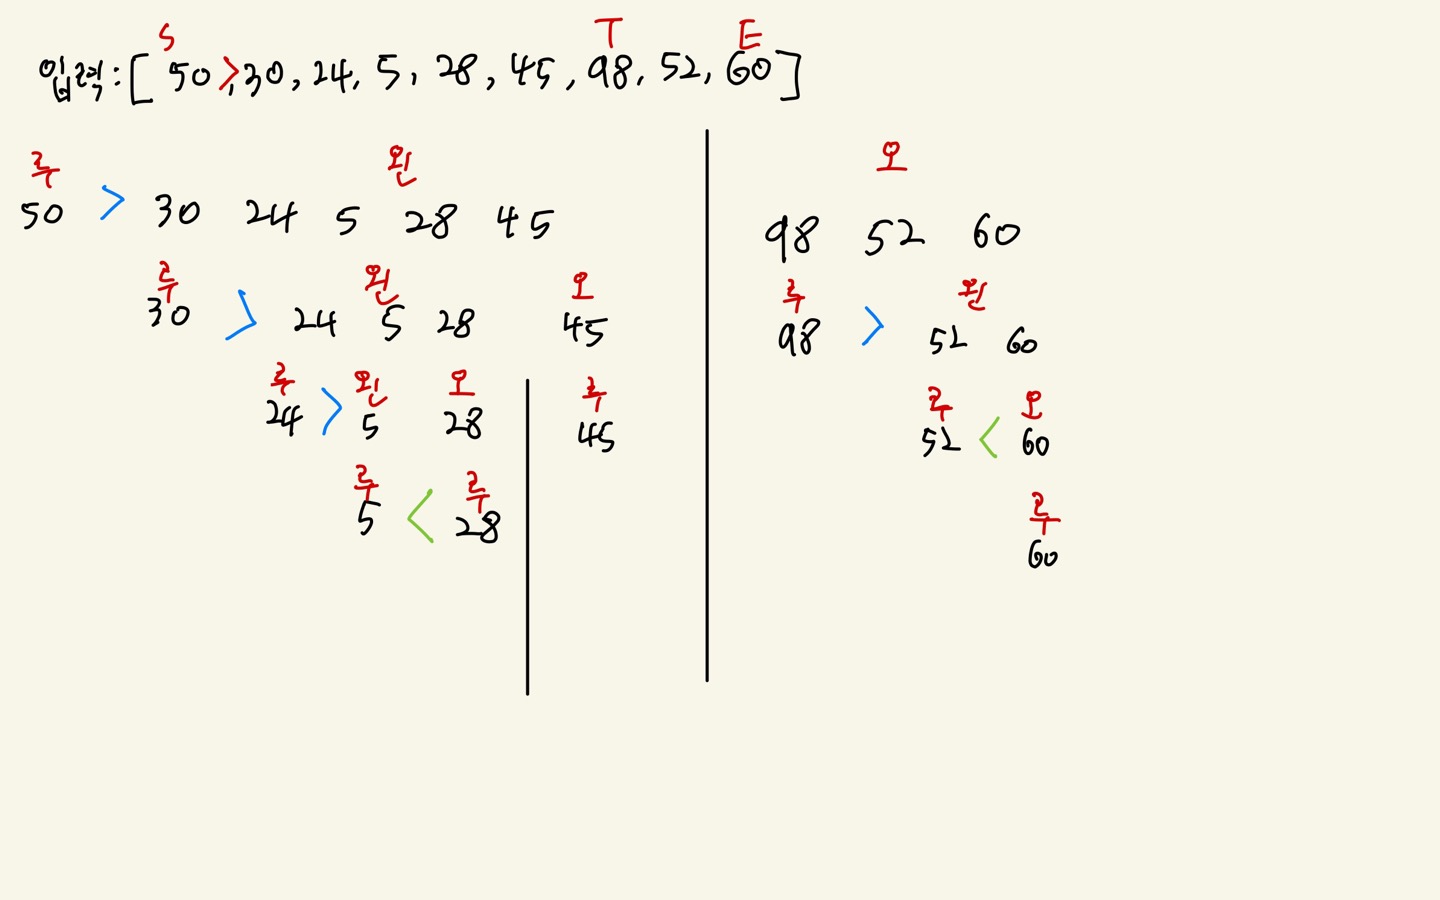 S T E
입력 : [ 50 > , 30 , 24 , 5 , 28 , 45 , 98 , 52 , 60 ]
루 왼
50 > 30 24 5 28 45
루 왼 오
30 > 24 5 28 45
루 왼 오 루
24 > 5 28 45
루 루
5 < 28
오
98 52 60
루 왼
98 > 52 60
루 오
52 < 60
루
60